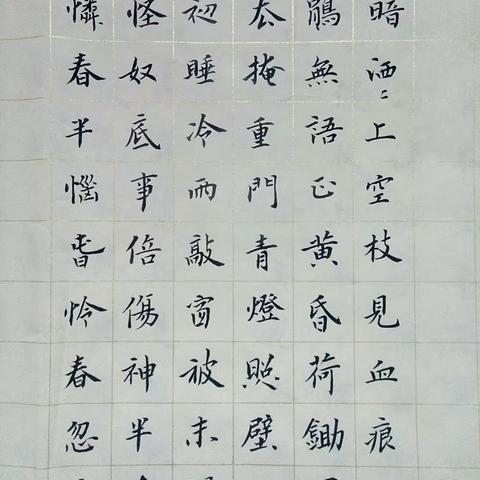 暗洒〻上空枝見血痕
鵑無語正黄昏荷鋤
厺掩重門青燈照壁
初睡冷雨敲窗被未
怪奴底事倍傷神半
憐春半惱旾怜春忽